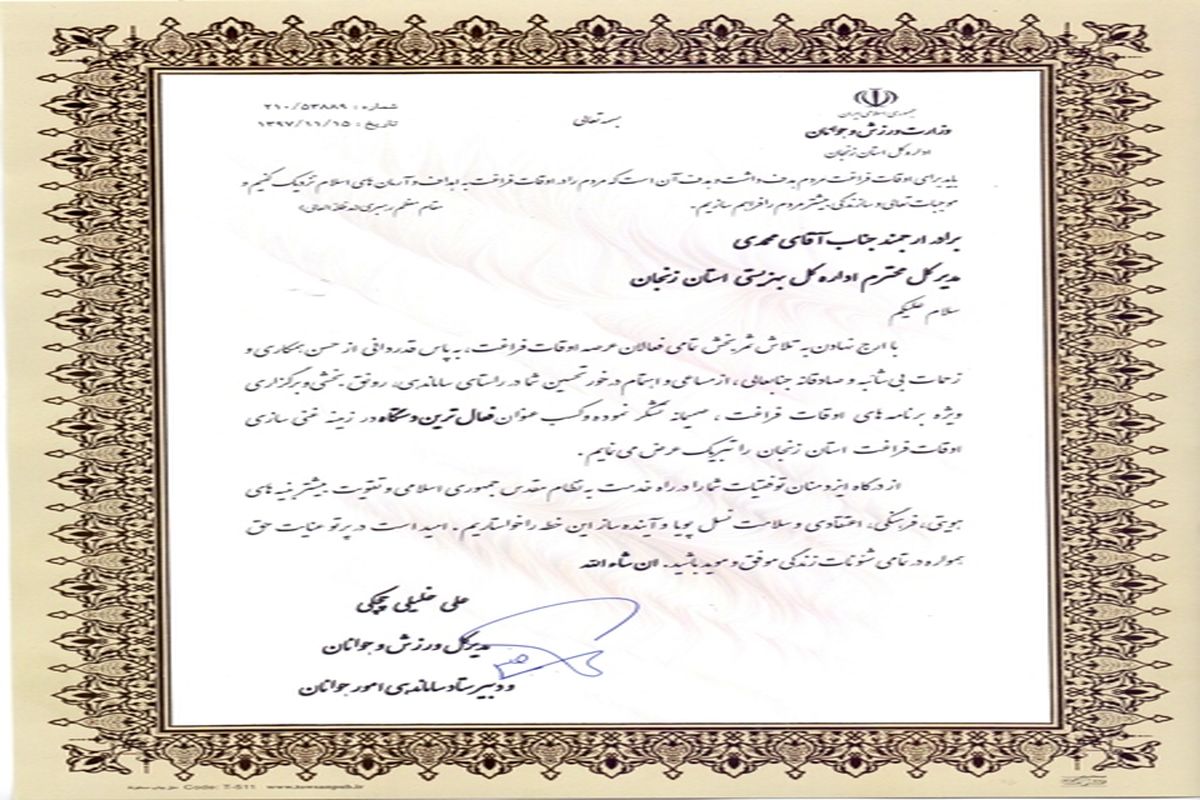 جمهوری اسلامی ایران
وزارت ورزش و جوانان
اداره کل استان زنجان
بسمه تعالی
شماره : ۲۱۰/۵۳۸۸۹
تاریخ : ۱۳۹۷/۱۱/۱۵
باید برای اوقات فراغت مردم هدف داشت و هدف آن است که مردم را در اوقات فراغت به اهداف و آرمان های اسلام نزدیک کنیم و
موجبات تعالی و سازندگی بیشتر مردم را فراهم سازیم.
مقام معظم رهبری(مدظله العالی)
برادر ارجمند جناب آقای محمدی
مدیر کل محترم اداره کل بهزیستی استان زنجان
سلام علیکم
با ارج نهادن به تلاش ثمربخش تمامی فعالان عرصه اوقات فراغت، به پاس قدردانی از حسن همکاری و
زحمات بی شائبه و صادقانه جنابعالی ، از مساعی و اهتمام در خور تحسین شما در راستای ساماندهی، رونق بخشی و برگزاری
ویژه برنامه های اوقات فراغت ، صمیمانه تشکر نموده و کسب عنوان فعال ترین دستگاه در زمینه غنی سازی
اوقات فراغت استان زنجان را تبریک عرض می نمایم .
از درگاه ایزد منان توفیقات شما را در راه خدمت به نظام مقدس جمهوری اسلامی و تقویت بیشتر بنیه های
هویتی، فرهنگی، اعتقادی و سلامت نسل پویا و آینده ساز این خطه را خواستاریم . امید است در پرتو عنایات حق
همواره در تمامی شئونات زندگی موفق و موید باشید. ان شاء الله
علی خلیلی چپکی
مدیرکل ورزش و جوانان
و دبیر ستاد ساماندهی امور جوانان
Code: T-511 www.towsanpub.ir